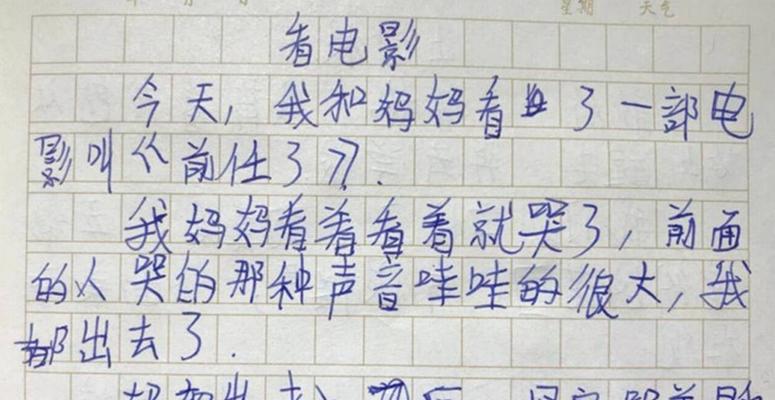 星期 天气
看电影
今天，我和妈妈看了一部电
影叫《前任3》.
我妈妈看着看着就哭了，前面
的人哭的那种声音哇哇的很大，我
都出去了.